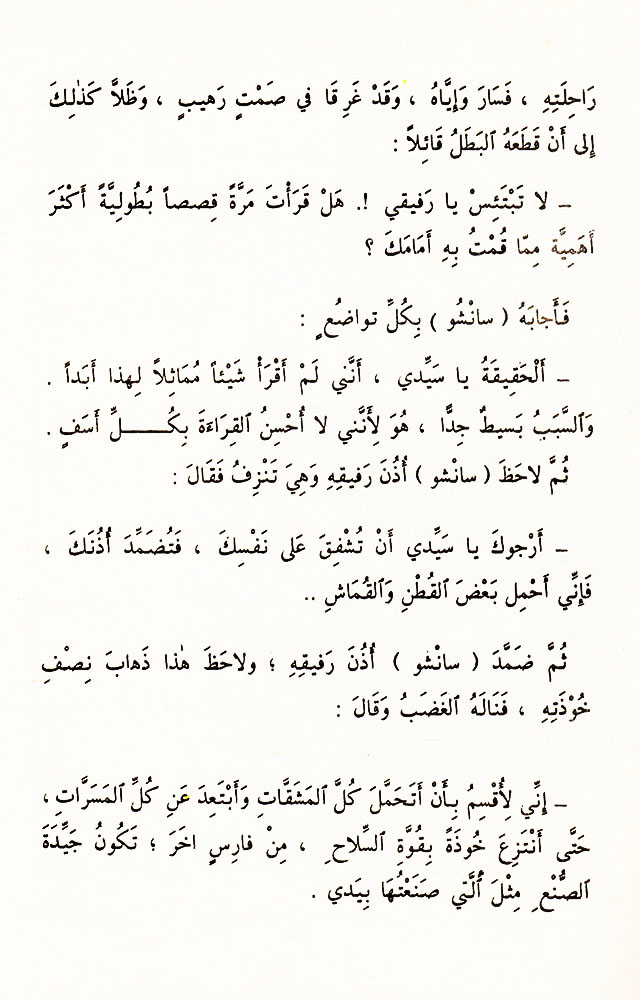 رَاحِلَتِهِ ، فَسَارَ وَإِيَّاهُ ، وَقَدْ غَرِقَا في صَمْتٍ رَهيبٍ ، وَظَلاَّ كَذٰلِكَ
إلى أَنْ قَطَعَهُ ٱلبَطَلُ قَائِلاً :
ـ لا تَبْتَئِسْ يا رَفيقي !. هَلْ قَرَأْتَ مَرَّةً قِصصاً بُطُولِيَّةً أَكْثَرَ
أَهَمِيَّة مِمّا قُمْتُ بِهِ أَمَامَكَ ؟
فَأَجابَهُ ( سانْشُو ) بِكُلِّ تواضُعٍ :
ـ أَلْحَقِيقَةُ يا سَيِّدي ، أَنَّني لَمْ أَقْرَأْ شَيْئاً مُمَاثِلاً لِهذا أَبَداً .
وَٱلسَّبَبُ بَسيطٌ جِدًّا ، هُوَ لِأَنَّني لا أُحْسِنُ القِرَاءَةَ بِكُـــــلِّ أَسَفٍ .
ثُمَّ لاحَظَ ( سانْشو ) أُذُنَ رَفيقِهِ وَهِيَ تَنْزِفُ فَقَالَ :
ـ أَرْجوكَ يا سَيِّدي أَنْ تُشْفِقَ عَلى نَفْسِكَ ، فَتُضَمِّدَ أُذُنَكَ ،
فَإِنِّي أَحْمِل بَعْضَ القُطْنِ وَٱلقُمَاشِ ..
ثُمَّ ضَمَّدَ ( سانْشو ) أُذُنَ رَفيقِهِ ؛ ولاحَظَ هٰذا ذَهابَ نِصْفِ
خُوْذَتِهِ ، فَنَالَهُ ٱلغَضَبُ وَقَالَ :
ـ إِنِّي لِأُقْسِمُ بِأَنْ أَتَحَمَّلَ كُلَّ ٱلمَشَقَّاتِ وَأَبْتَعِدَ عَنِ كُلِّ ٱلمَسَرَّاتِ ،
حَتَّى أَنْتَزِعَ خُوذَةً بِقُوَّةِ ٱلسِّلاحِ ، مِنْ فارِسٍ اخَرَ ؛ تَكُونُ جَيِّدَةَ
ٱلصُّنْعِ مِثْلَ ٱلَّتي صَنَعْتُهَا بِيَدي .